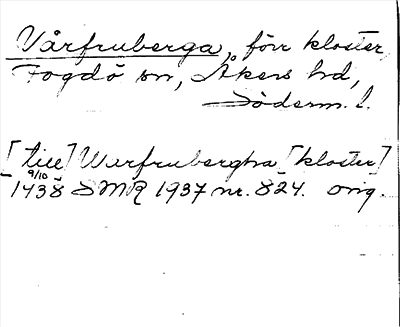 Vårfruberga, förr kloster,
Fogdö sn, Åkers hd,
Söderm. l.
[till] Warfrubergha [kloster]
9/10
1438 SMR 1937 nr. 824. orig.